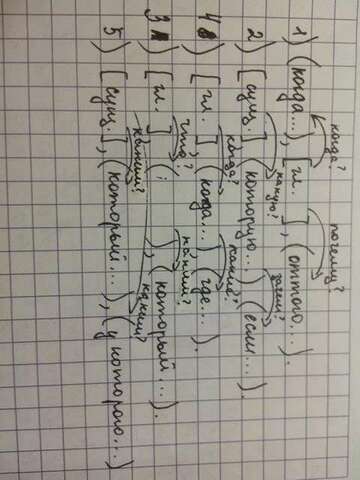 когда? почему?
1) (когда...), [гл. ], (оттого...).
какую? зачем?
2) [сущ. ], (которую...), (если...).
когда?
4) [гл. ], (когда...), (где...).
что?
3) [гл. ], (), (который...).
каким?
5) [сущ. ], (который...), (у которого...)